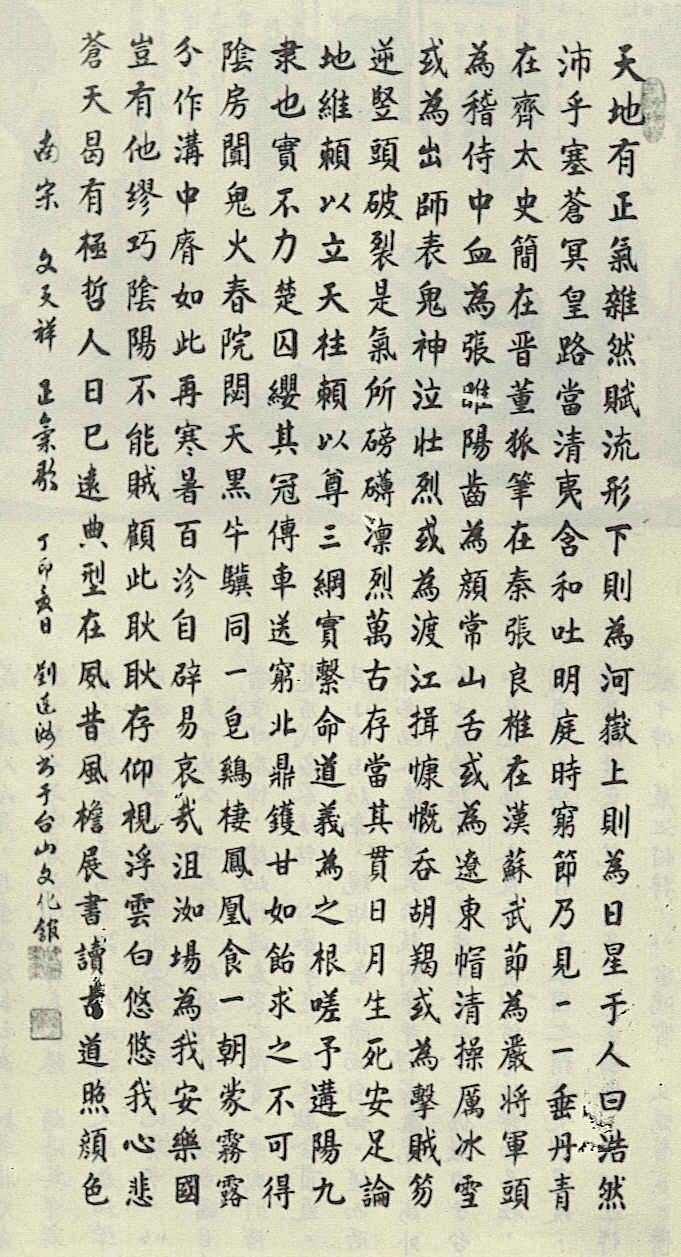 天地有正氣雜然賦流形下則為河嶽上則為日星于人曰浩然
沛乎塞蒼冥皇路當清夷含和吐明庭時窮節乃見一一垂丹青
在齊太史簡在晋董狐筆在秦張良椎在漢蘇武節為嚴將軍頭
為稽侍中血為張睢陽齒為顏常山舌或為遼東帽清操厲冰雪
或為出師表鬼神泣壯烈或為渡江揖慷慨吞胡羯或為擊賊笏
逆豎頭破裂是氣所磅礴凛烈萬古存當其貫日月生死安足論
地維賴以立天柱賴以尊三綱實繫命道義為之根嗟予遘陽九
隶也實不力楚囚纓其冠傳車送窮北鼎鑊甘如飴求之不可得
陰房闃鬼火春院閟天黑牛驥同一皂鷄棲鳳凰食一朝蒙霧露
分作溝中瘠如此再寒暑百沴自辟易哀哉沮洳場為我安樂國
豈有他繆巧陰陽不能賊顧此耿耿存仰視浮雲白悠悠我心悲
蒼天曷有極哲人日已遠典型在夙昔風檐展書讀古道照顏色
南宋 文天祥 正氣歌 丁卯日 劉書于台山文化館